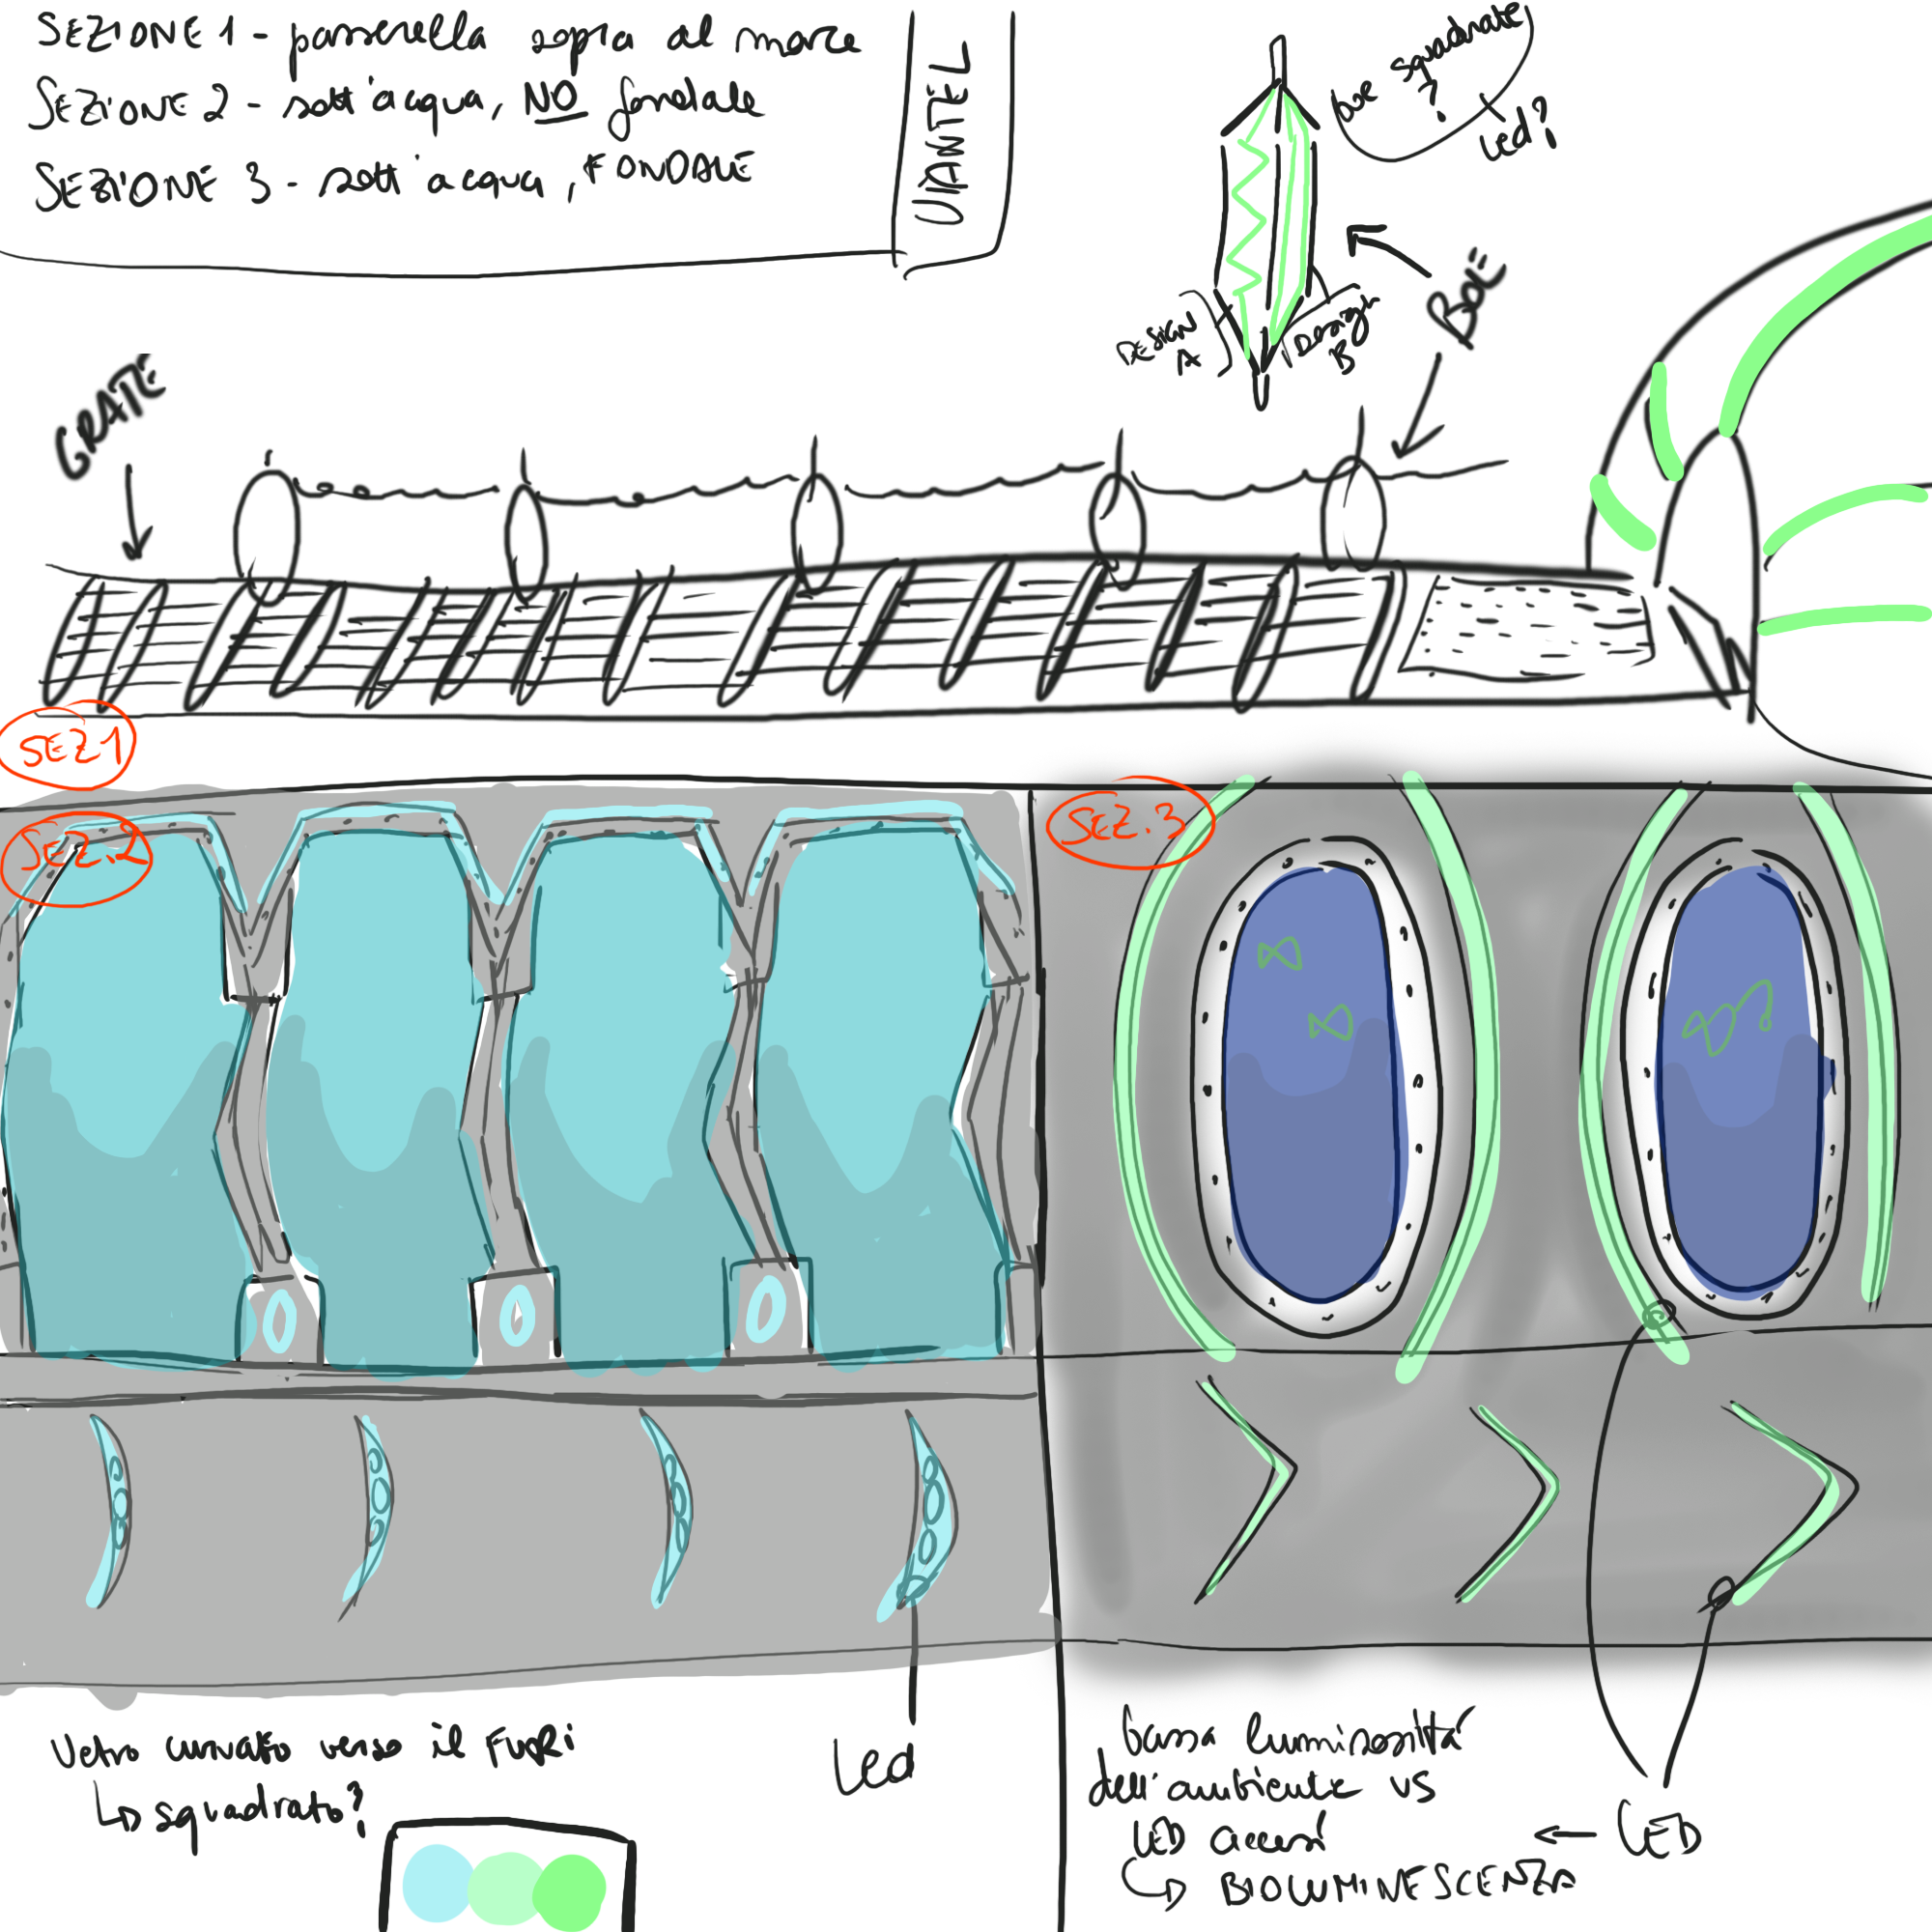 SEZIONE 1 - passerella sopra al mare
SEZIONE 2 - sott'acqua, NO fondale
SEZIONE 3 - sott'acqua, FONDALE
boe squadrate
?
x
Led?
DESIGN
A
Design
B
BOE
GRATE
SEZ 1
SEZ. 2
SEZ. 3
Vetro curvato verso il FUORI
squadrato?
Led
bassa luminosità
dell'ambiente VS
LED accesi
BIOLUMINESCENZA
LED